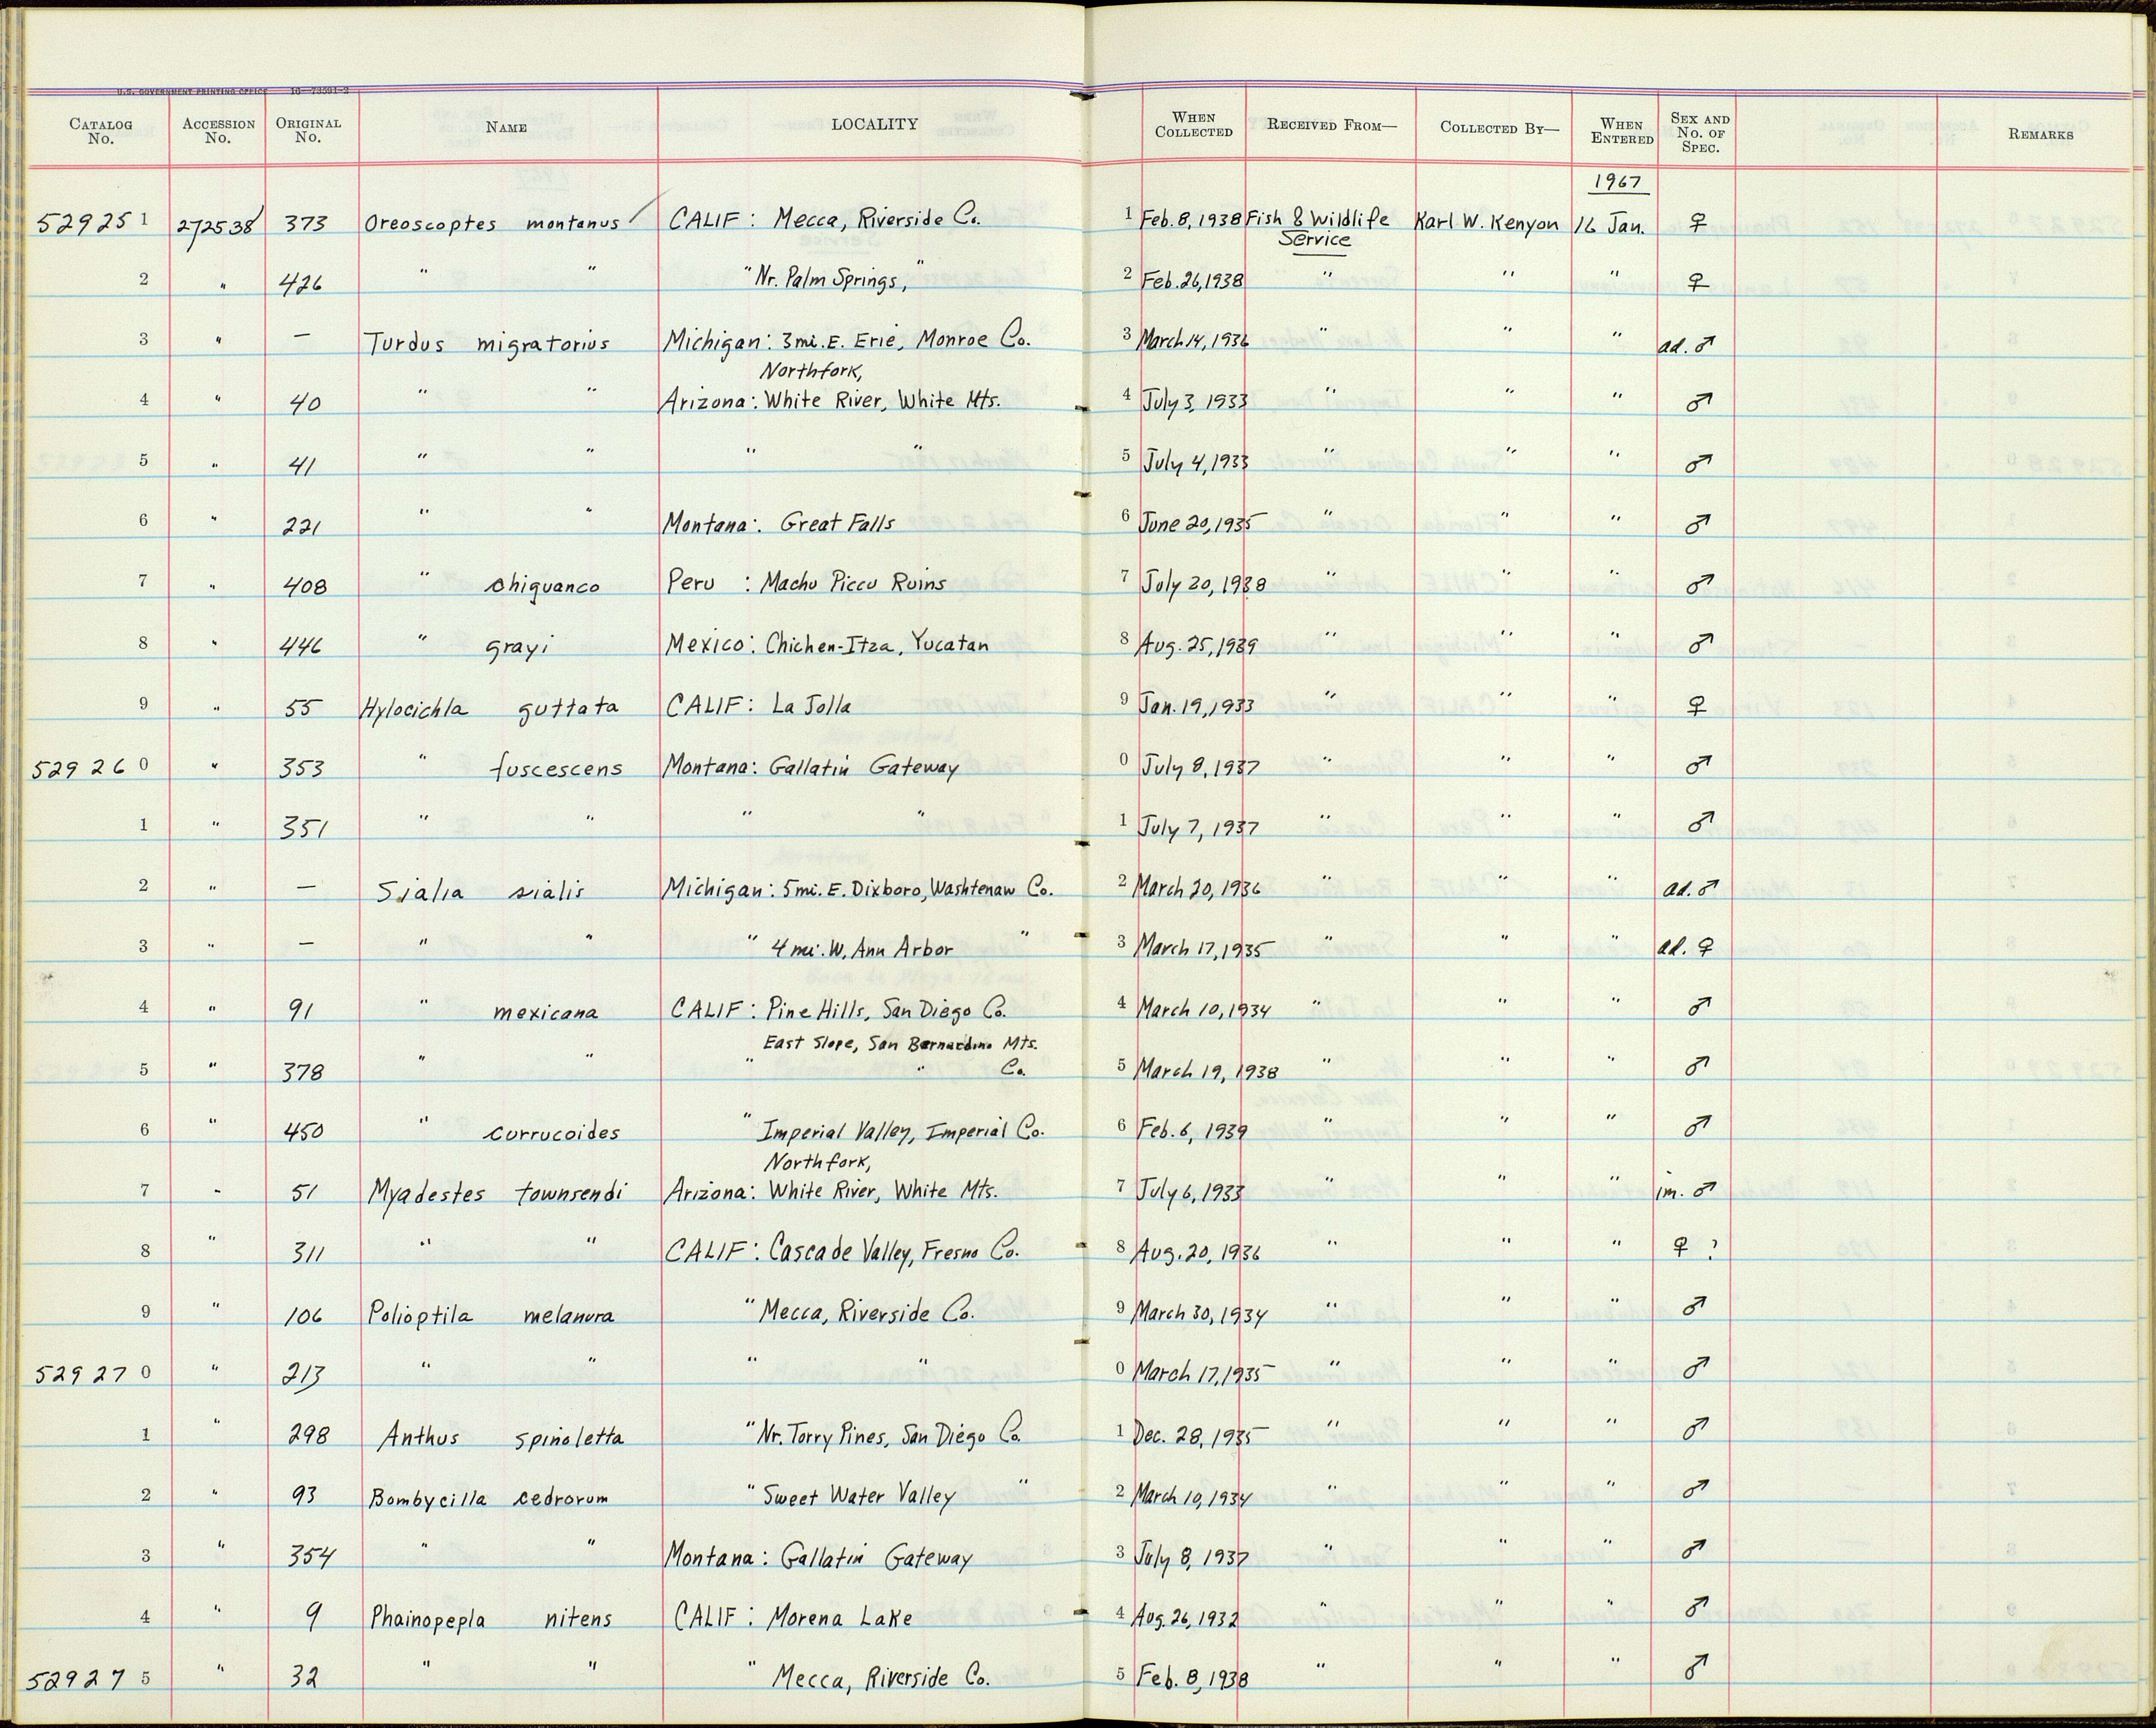 U.S. GOVERNMENT PRINTING OFFICE 16—73591-2
CATALOG No. ACCESSION No. ORIGINAL No. NAME LOCALITY WHEN COLLECTED RECEIVED FROM— COLLECTED BY— WHEN ENTERED SEX AND No. OF SPEC. REMARKS
1967
52925 1 272538 373 Oreoscoptes montanus CALIF : Mecca, Riverside Co. 1 Feb. 8, 1938 Fish & Wildlife Service Karl W. Kenyon 16 Jan. ♀
2 " 426 " " " Nr. Palm Springs, " 2 Feb. 26, 1938 " " " ♀
3 " — Turdus migratorius Michigan : 3 mi. E. Erie, Monroe Co. 3 March 14, 1936 " " " ad. ♂
Northfork,
4 " 40 " " Arizona : White River, White Mts. 4 July 3, 1933 " " " ♂
5 " 41 " " " " 5 July 4, 1933 " " " ♂
6 " 221 " " Montana : Great Falls 6 June 20, 1935 " " " ♂
7 " 408 " chiguanco Peru : Machu Piccu Ruins 7 July 20, 1938 " " " ♂
8 " 446 " grayi Mexico : Chichen-Itza, Yucatan 8 Aug. 25, 1939 " " " ♂
9 " 55 Hylocichla guttata CALIF : La Jolla 9 Jan. 19, 1933 " " " ♀
52926 0 " 353 " fuscescens Montana : Gallatin Gateway 0 July 8, 1937 " " " ♂
1 " 351 " " " " 1 July 7, 1937 " " " ♂
2 " — Sialia sialis Michigan : 5 mi. E. Dixboro, Washtenaw Co. 2 March 20, 1936 " " " ad. ♂
3 " — " " " 4 mi. W. Ann Arbor " 3 March 17, 1935 " " " ad. ♀
4 " 91 " mexicana CALIF : Pine Hills, San Diego Co. 4 March 10, 1934 " " " ♂
East Slope, San Bernardino Mts.
5 " 378 " " " " Co. 5 March 19, 1938 " " " ♂
6 " 450 " currucoides " Imperial Valley, Imperial Co. 6 Feb. 6, 1939 " " " ♂
Northfork,
7 " 51 Myadestes townsendi Arizona : White River, White Mts. 7 July 6, 1933 " " " im. ♂
8 " 311 " " CALIF : Cascade Valley, Fresno Co. 8 Aug. 20, 1936 " " " ♀ ?
9 " 106 Polioptila melanura " Mecca, Riverside Co. 9 March 30, 1934 " " " ♂
52927 0 " 213 " " " " 0 March 17, 1935 " " " ♂
1 " 298 Anthus spinoletta " Nr. Torry Pines, San Diego Co. 1 Dec. 28, 1935 " " " ♂
2 " 93 Bombycilla cedrorum " Sweet Water Valley " 2 March 10, 1934 " " " ♂
3 " 354 " " Montana : Gallatin Gateway 3 July 8, 1937 " " " ♂
4 " 9 Phainopepla nitens CALIF : Morena Lake 4 Aug. 26, 1932 " " " ♂
52927 5 " 32 " " " Mecca, Riverside Co. 5 Feb. 8, 1938 " " " ♂